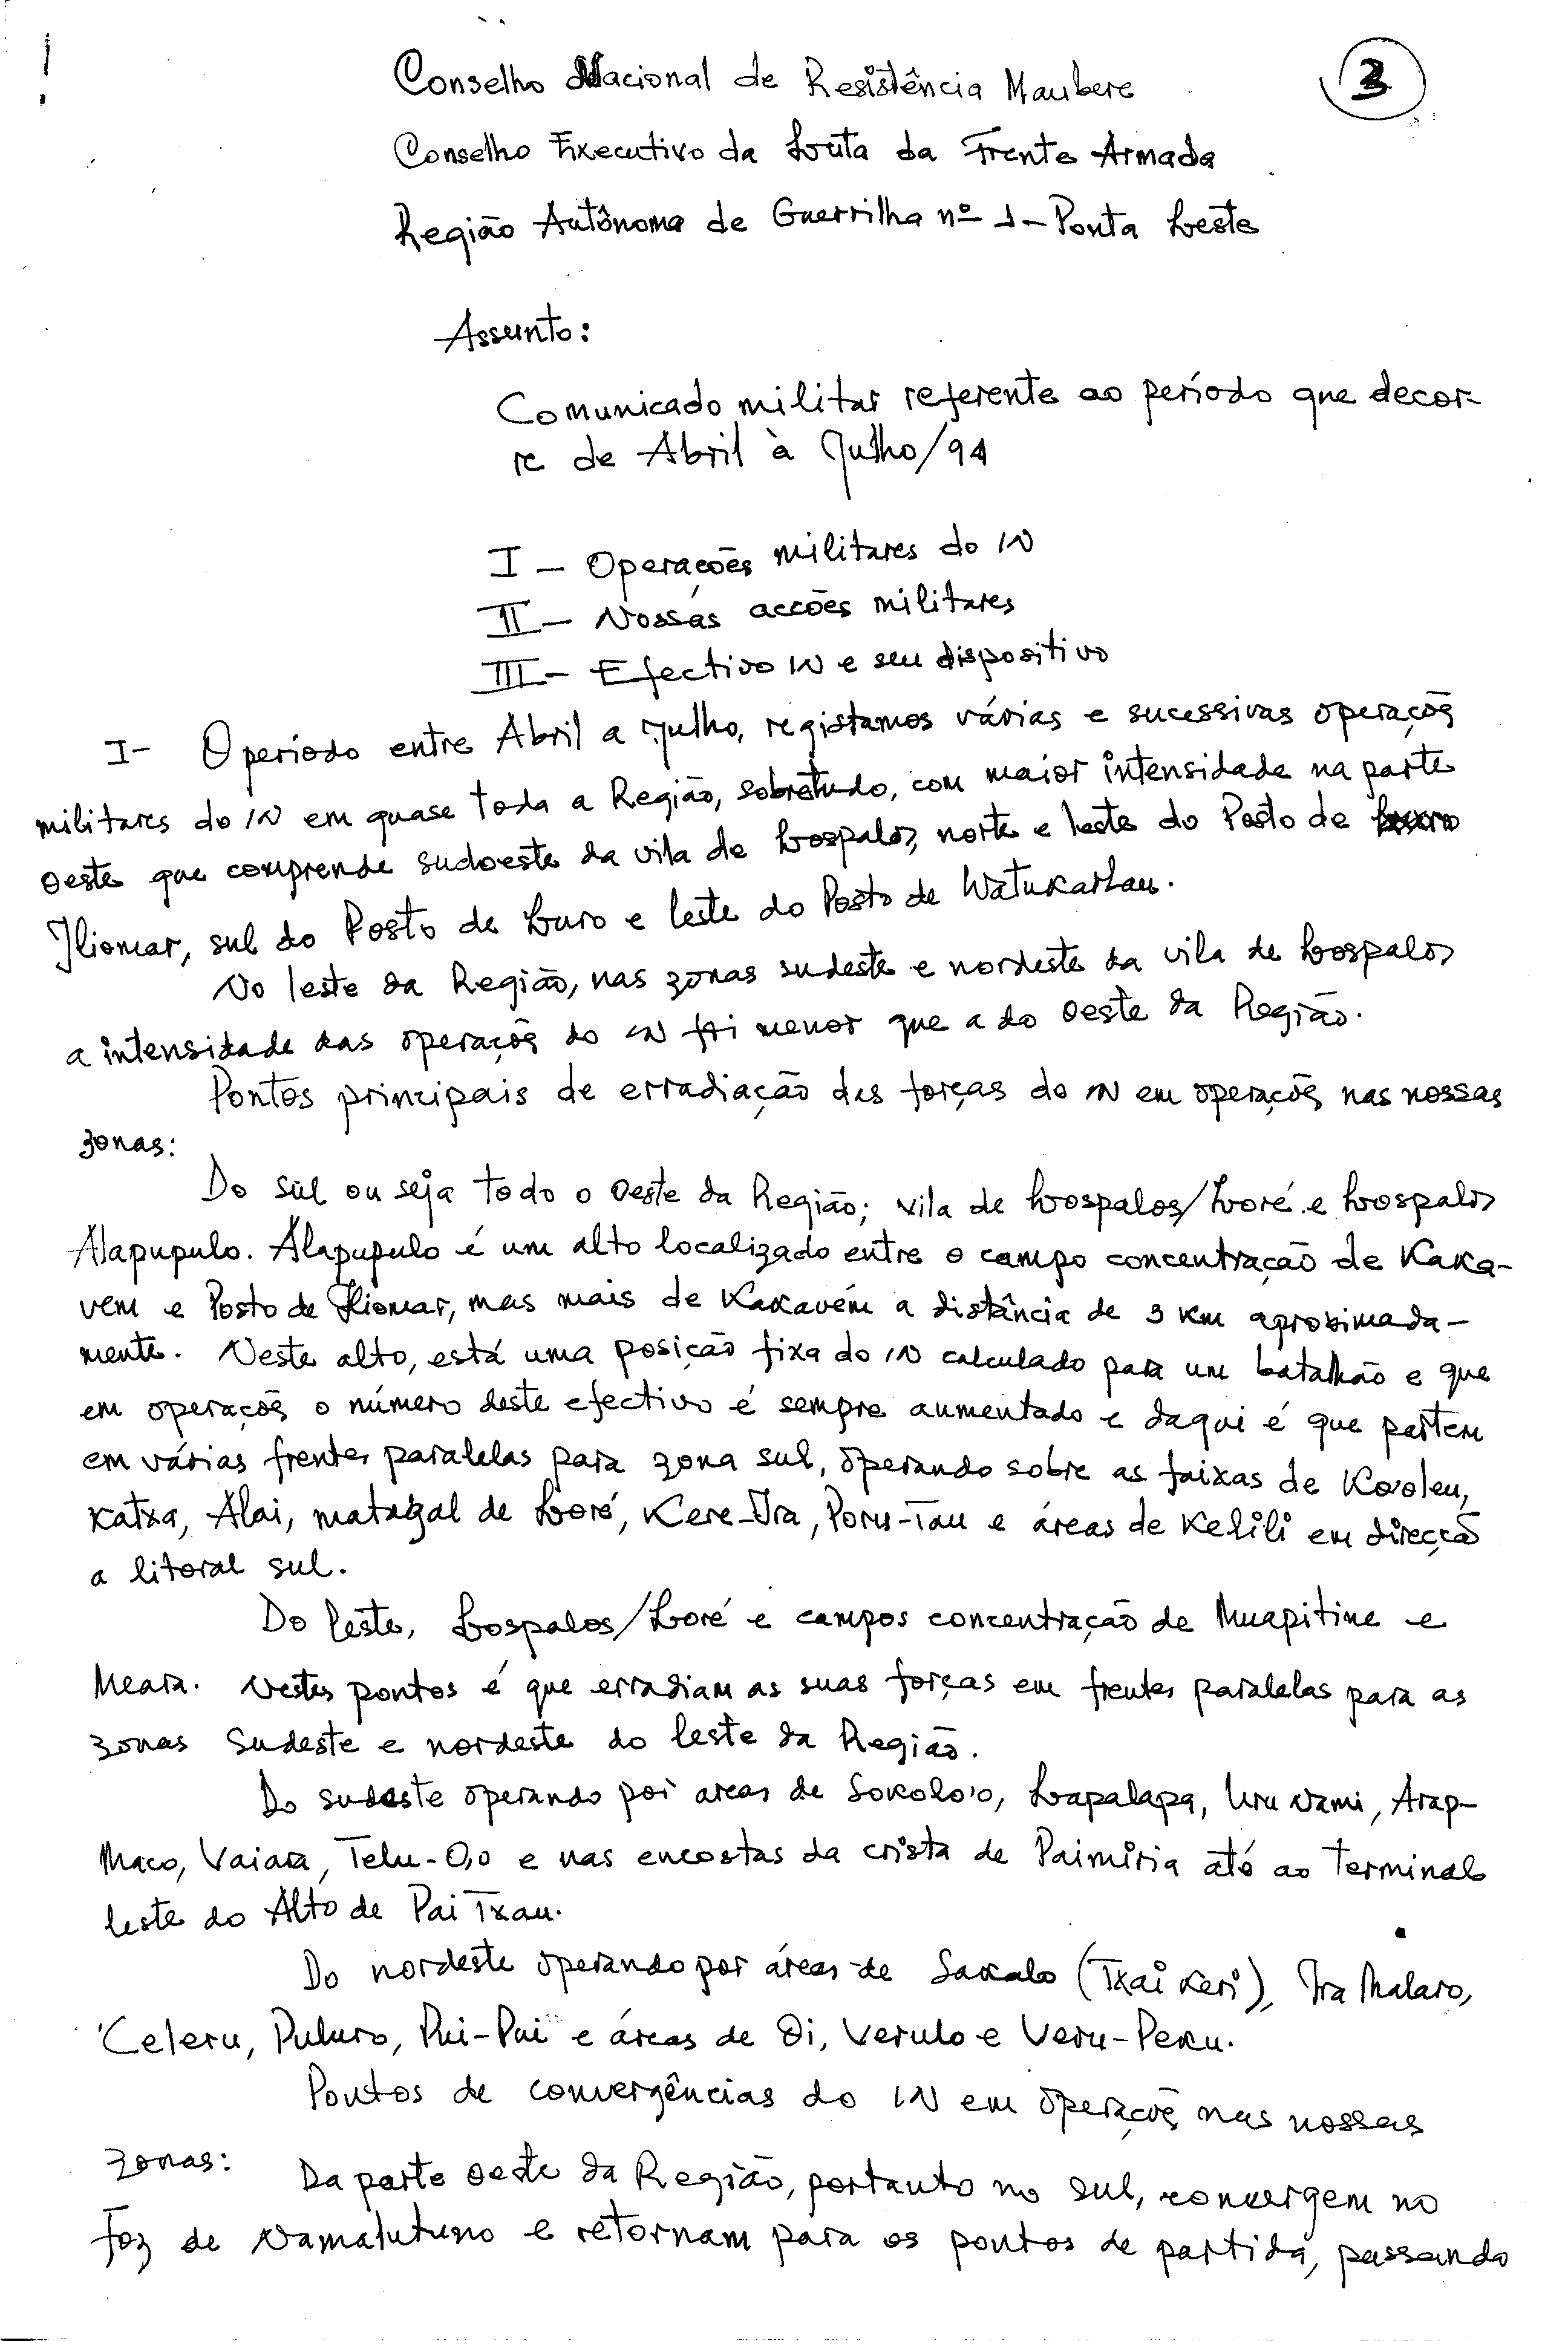 3
Conselho Nacional de Resistência Maubere
Conselho Executivo da Luta da Frente Armada
Região Autônoma de Guerrilha nº 1 - Ponta Leste
Assunto:
Comunicado militar referente ao período que decor-
re de Abril à Julho/94
I - Operações militares do IN
II - Nossas accões militares
III - Efectivo IN e seu dispositivo
I- O período entre Abril a Julho, registamos várias e sucessivas operaçõs
militares do IN em quase toda a Região, sobretudo, com maior intensidade na parte
oeste que comprende sudoeste da vila de Lospalos, norte e leste do Posto de
Iliomar, sul do Posto de Luro e leste do Posto de Watukarbau.
No leste da Região, nas zonas sudeste e nordeste da vila de Lospalos
a intensidade das operaçõs do IN foi menor que a do oeste da Região.
Pontos principais de erradiação das forças do IN em operaçõs nas nossas
zonas:
Do sul ou seja todo o oeste da Região; vila de Lospalos/Loré e Lospalos
Alapupulo. Alapupulo é um alto localizado entre o campo concentração de Kaka-
vem e Posto de Iliomar, mas mais de Kakavém a distância de 3 km aproximada-
mente. Neste alto, está uma posição fixa do IN calculado para um batalhão e que
em operaçõs o número deste efectivo é sempre aumentado e daqui é que partem
em várias frentes paralelas para zona sul, operando sobre as faixas de Kooleu,
Katxa, Alai, matagal de Loré, Kere-Ira, Poru-Tau e áreas de Kelili em direcçã
a litoral sul.
Do leste, Lospalos/Loré e campos concentração de Muapitine e
Meara. Nestes pontos é que erradiam as suas forças em frentes paralelas para as
zonas Sudeste e nordeste do leste da Região.
Do sudeste operando por areas de Sokolo'o, Lapalapa, Uru Nami, Arap-
Maco, Vaiara, Telu-O,o e nas encostas da crista de Paimiria até ao Terminal
leste do Alto de Pai Txau.
Do nordeste operando por áreas de Sakalo (Txai Keri), Ira Malaro,
Celeru, Puluro, Pui-Pui e áreas de Oi, Verulo e Veru-Peku.
Pontos de convergências do IN em operaçõs nas nossas
zonas:
Da parte oeste da Região, portanto no sul, convergem no
foz de Namalutuno e retornam para os pontos de partida, passando